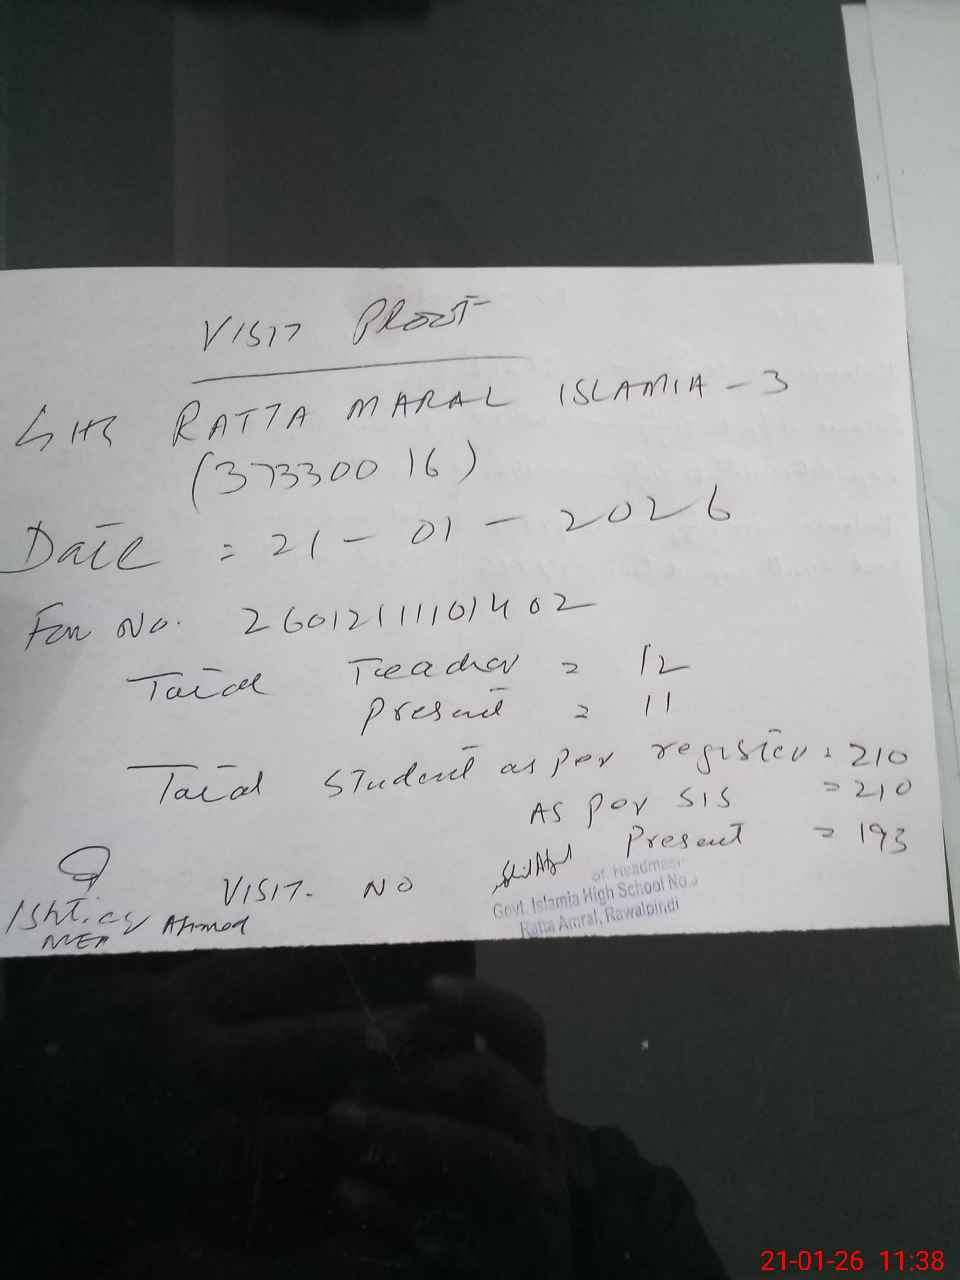 VISIT PROOF
GHS RATTA MARAL ISLAMIA - 3
(37330016)
Date = 21 - 01 - 2026
Fon No. 26012111101402
Total Teacher = 12
Present = 11
Total Student as per register = 210
AS Per SIS = 210
Present = 193
VISIT. NO
Ishtiaq Ahmad
MEA
Sr. Headmaster
Govt. Islamia High School No.3
Ratta Amral, Rawalpindi
21-01-26 11:38